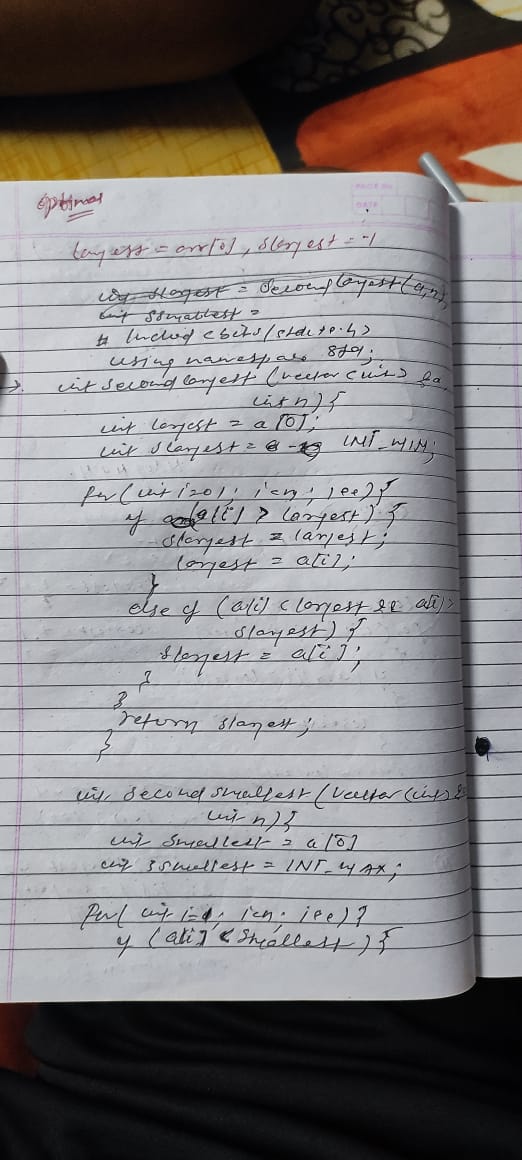 optimal
PAGE No.
DATE
largest = arr[0], slargest = -1
int slargest = secondlargest(a,n)
int ssmallest =
# include <bits/stdc++.h>
using namespace std;
int secondlargest (vector<int> &a,
int n) {
int largest = a[0];
int slargest = INT_MIN;
for (int i=0; i<n; i++) {
if (a[i] > largest) {
slargest = largest;
largest = a[i];
}
else if (a[i] < largest && a[i] >
slargest) {
slargest = a[i];
}
}
return slargest;
}
int second smallest (vector<int> &
int n) {
int smallest = a[0]
int ssmallest = INT_MAX;
for( int i=0; i<n; i++) {
if (a[i] < smallest) {